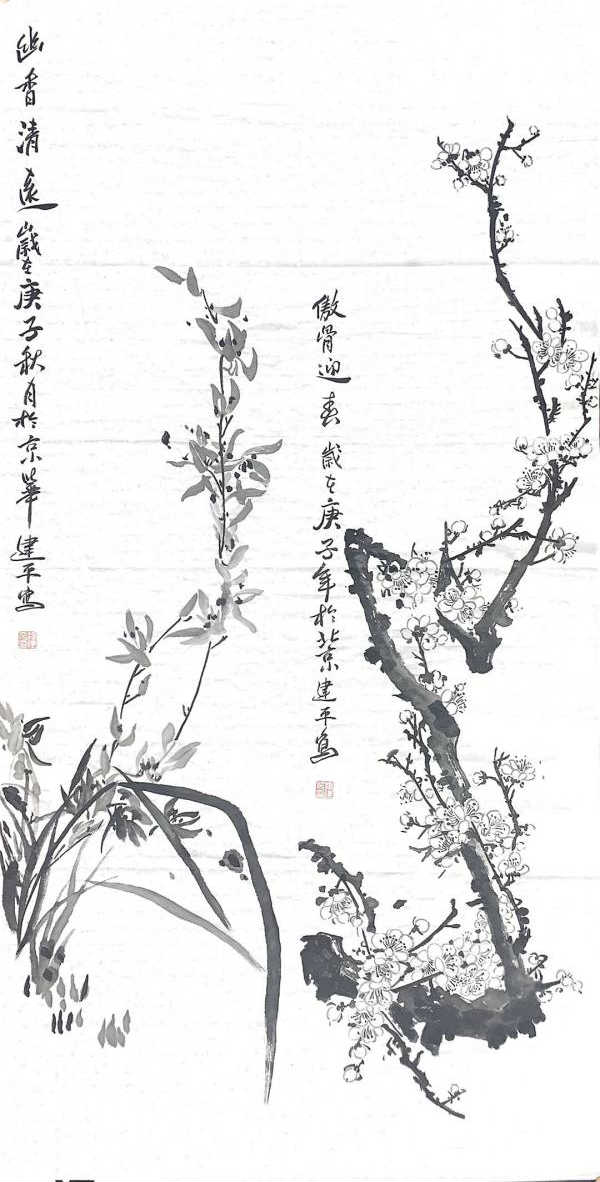 傲骨迎春 歲在庚子年於北京建平寫
幽香清遠 歲在庚子秋月於京華建平寫